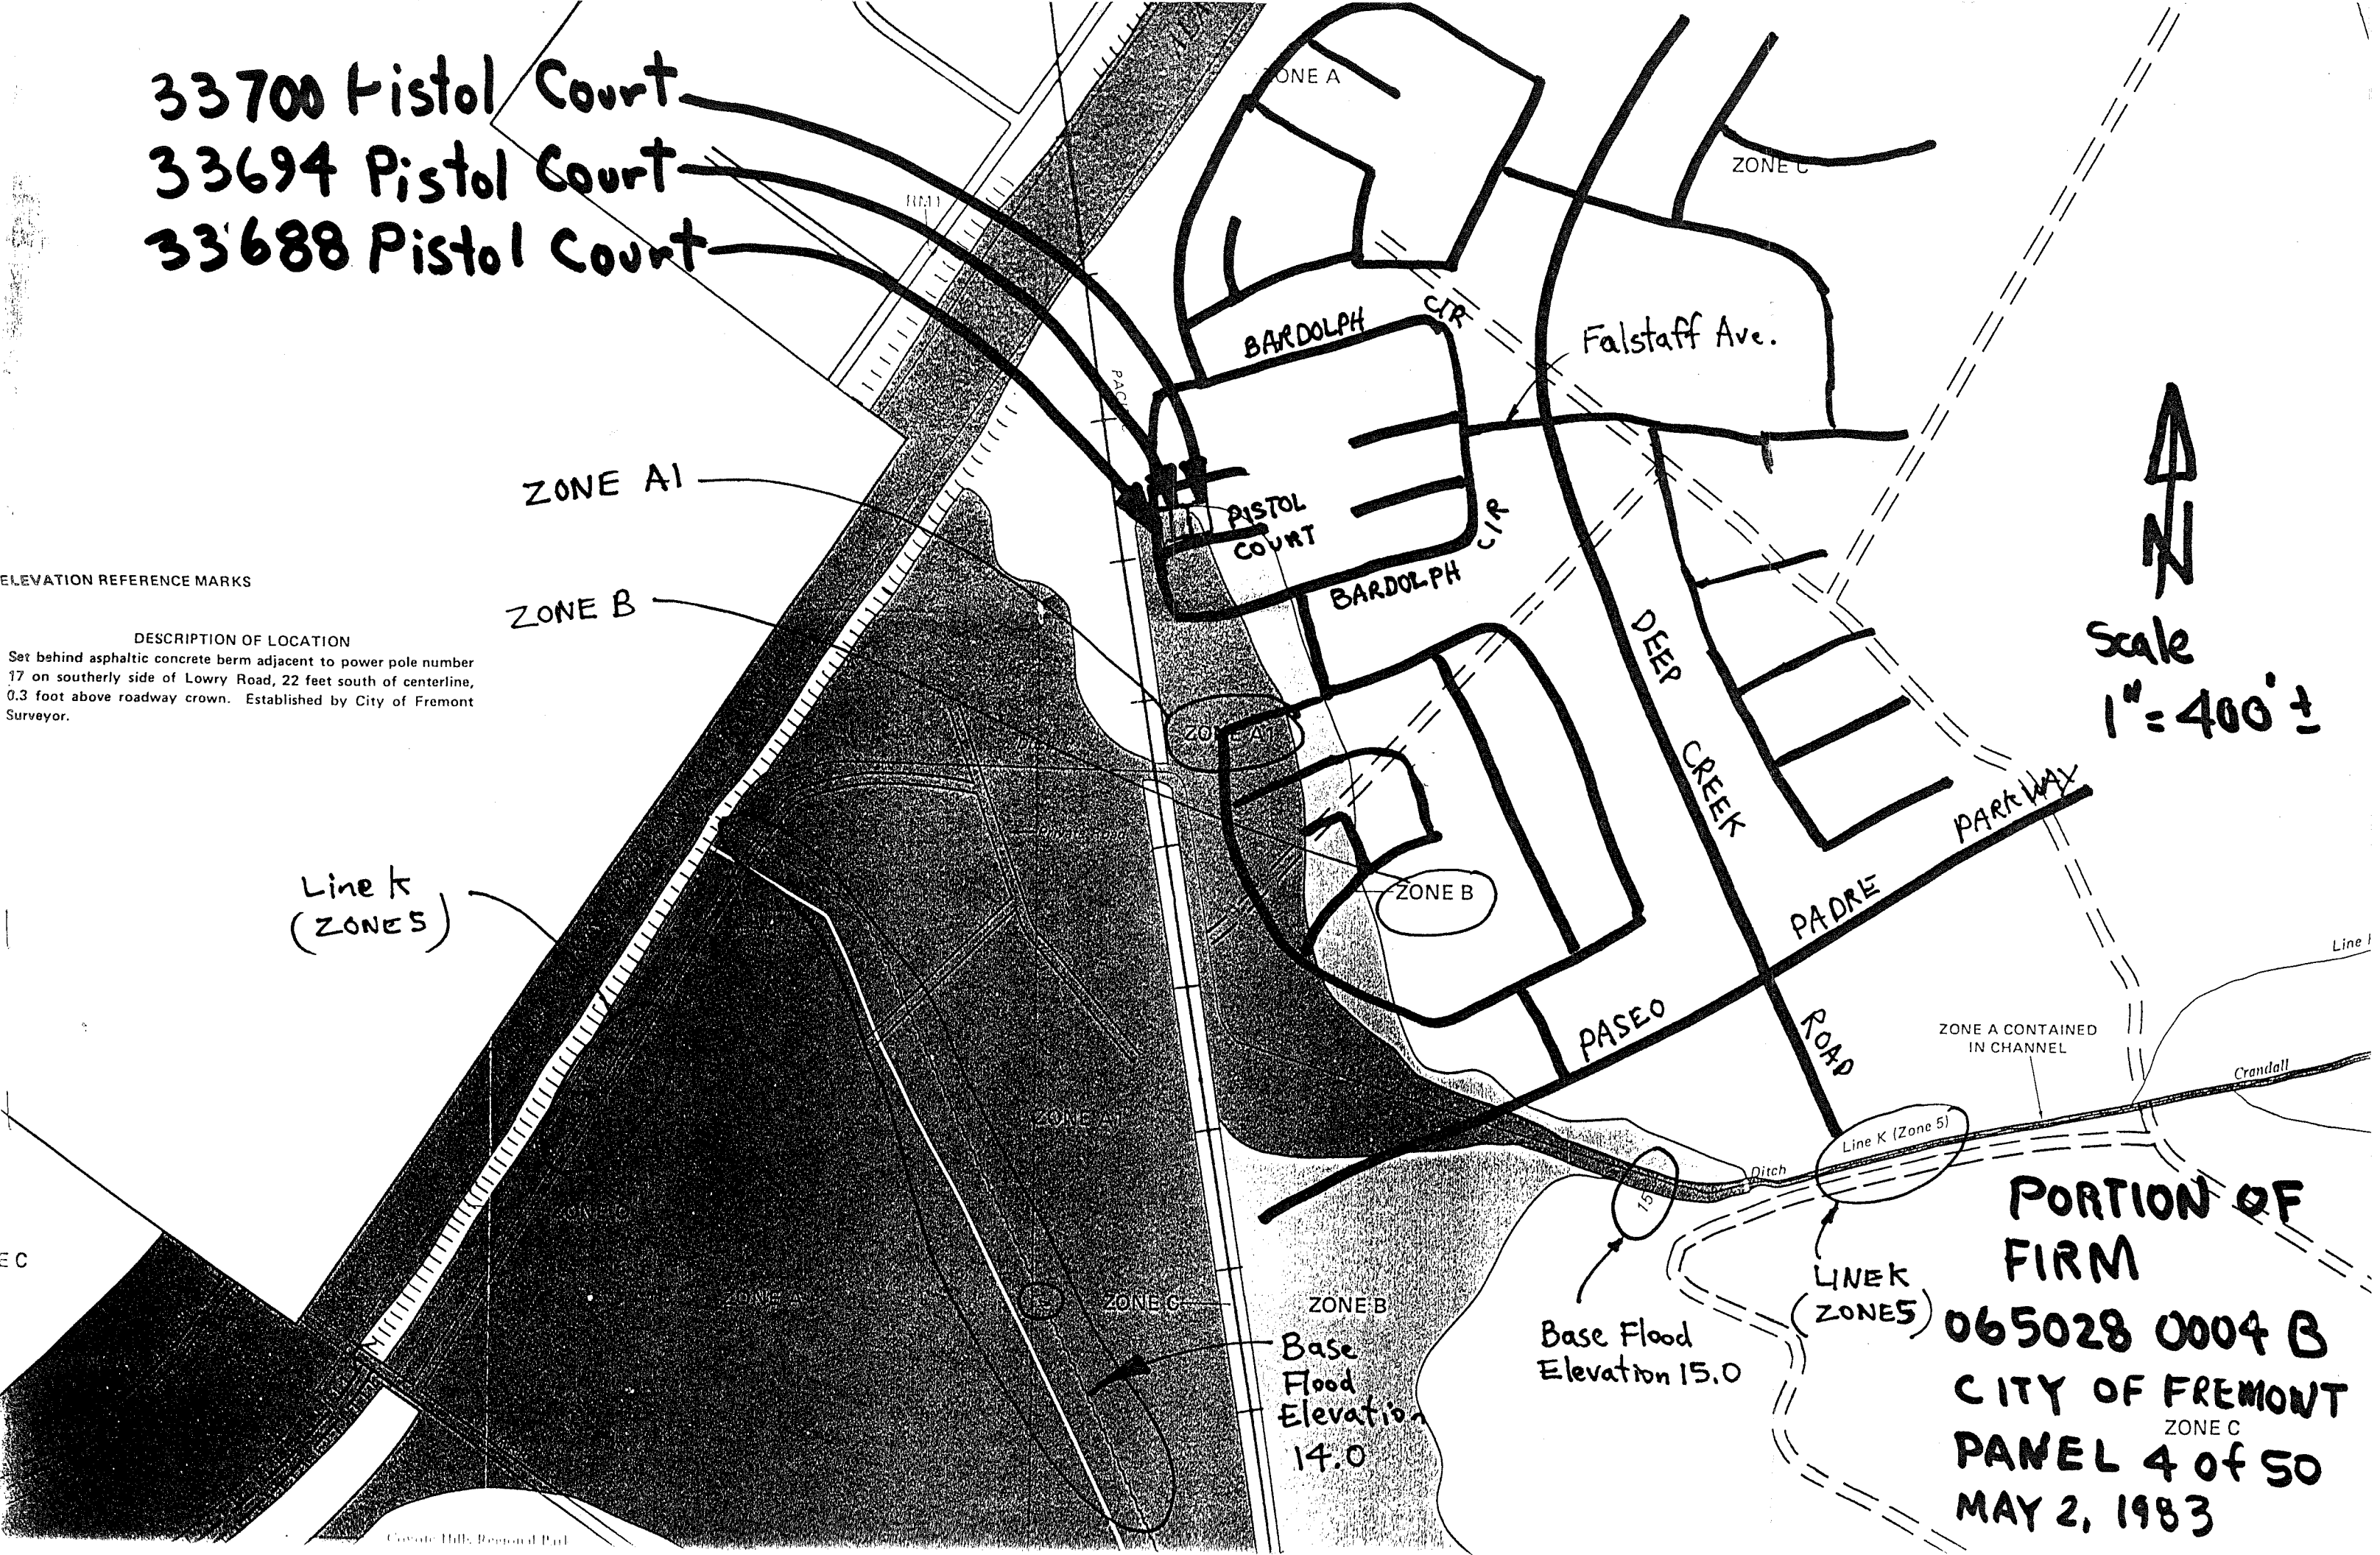 33700 Pistol Court
33694 Pistol Court
33688 Pistol Court
ZONE A
ZONE C
RM1
BARDOLPH
CIR
Falstaff Ave.
ZONE A1
PISTOL
COURT
BARDOLPH
CIR
N
ELEVATION REFERENCE MARKS
ZONE B
DESCRIPTION OF LOCATION
Set behind asphaltic concrete berm adjacent to power pole number
17 on southerly side of Lowry Road, 22 feet south of centerline,
0.3 foot above roadway crown. Established by City of Fremont
Surveyor.
Scale
1" = 400' ±
ZONE A1
DEEP
CREEK
ROAD
PASEO
PADRE
PARKWAY
Line K
(ZONE 5)
ZONE B
Line
ZONE A CONTAINED
IN CHANNEL
Crandall
ZONE A1
Line K (Zone 5)
Ditch
15
E C
ZONE C
ZONE B
Base
Flood
Elevation
14.0
Base Flood
Elevation 15.0
LINE K
(ZONE 5)
PORTION OF
FIRM
065028 0004 B
CITY OF FREMONT
ZONE C
PANEL 4 of 50
MAY 2, 1983
Coyote Hills Regional Park